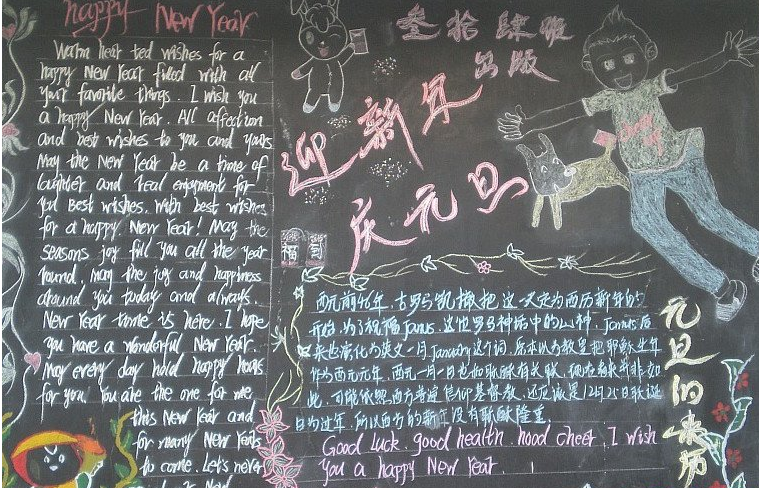 Happy New Year
Warm hear ted wishes for a
happy New Year filled with all
your favorite things. I wish you
a happy New Year. All affection
and best wishes to you and yours
May the New Year be a time of
laughter and real enjoyment for
you Best wishes. With best wishes
for a happy New Year! May the
seasons joy fill you all the year
round, may the joy and happiness
around you today and always.
New Year time is here. I hope
you have a wonderful New Year.
May every day hold happy hours
for you. You are the one for me
this New Year and
for many New Years
to come. Let's never
叁拾肆班
出版
迎新年
庆元旦
西元前46年,古罗马凯撒把这一天定为西历新年的
开始,为了祝福Janus,这位罗马神话中的门神,Janus后
来也演化为英文一月January这个词,原本以为教皇把耶稣生年
作为西元元年,西元一月一日也和耶稣有关联,现在看来并非如
此,可能依照西方普遍信仰基督教,还应该是12月25日联诞
日为过年,所以西方的新年没有耶稣隆重。
Good luck, good health, hood cheer. I wish
you a happy New Year.
元旦的来历